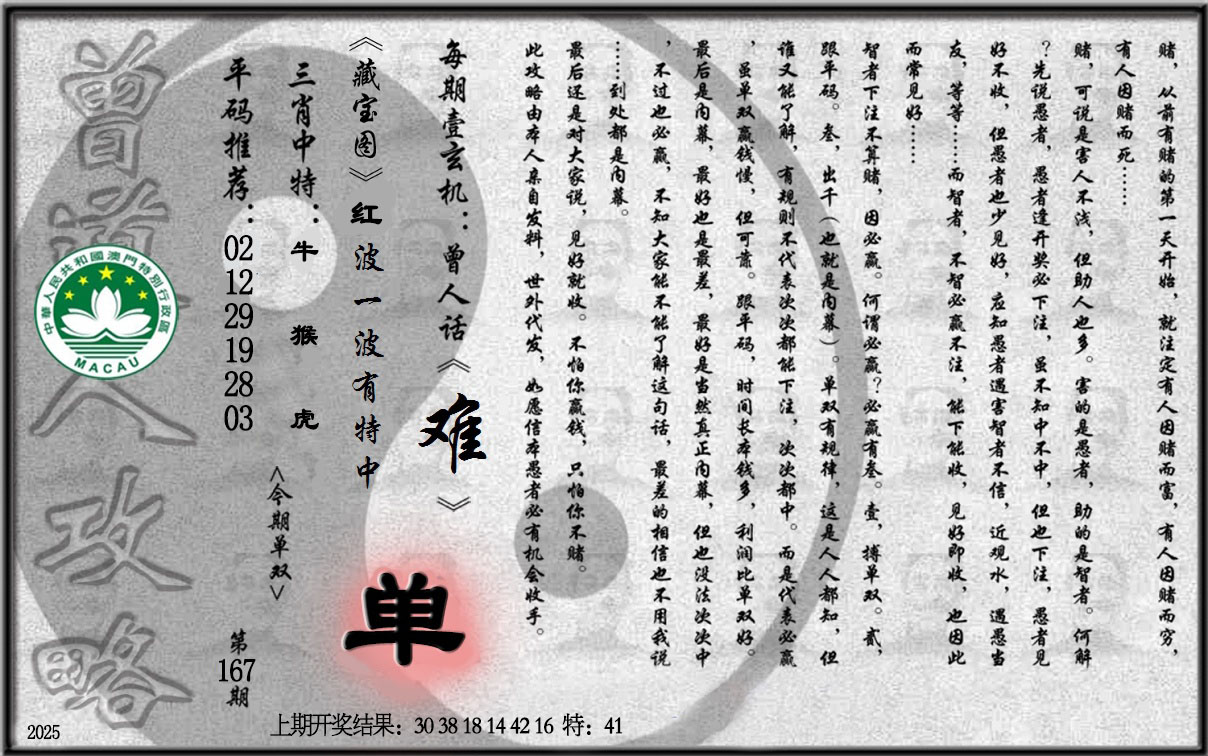 赌，从前有赌的第一天开始，就注定有人因赌而富，有人因赌而穷，
有人因赌而死……
赌，可说是害人不浅，但助人也多。害的是愚者，助的是智者。何解
？先说愚者，愚者逢开奖必下注，虽不知中不中，但也下注，愚者见
好不收，但愚者也少见好，应知愚者遇害智者不信，近观水，遇愚当
友，等等……而智者，不智必赢不注，能下能收，见好即收，也因此
而常见好……
智者下注不算赌，因必赢。何谓必赢？必赢有叁。壹，搏单双。贰，
跟平码。叁，出千（也就是内幕）。单双有规律，这是人人都知，但
谁又能了解，有规则不代表次次都能下注，次次都中。而是代表必赢
，虽单双赢钱慢，但可靠。跟平码，时间长本钱多，利润比单双好。
最后是内幕，最好也是最差，最好是当然真正内幕，但也没法次次中
，不过也必赢，不知大家能不能了解这句话，最差的相信也不用我说
……到处都是内幕。
最后还是对大家说，见好就收。不怕你赢钱，只怕你不赌。
此攻略由本人亲自发料，世外代发，如愿信本愚者必有机会收手。
每期壹玄机：曾人话《难》
《藏宝图》红波一波有特中
单
三肖中特：牛猴虎
<今期单双>
平码推荐：02 12 29 19 28 03
第167期
曾道人攻略
中華人民共和國澳門特別行政區
MACAU
2025
上期开奖结果：30 38 18 14 42 16 特：41